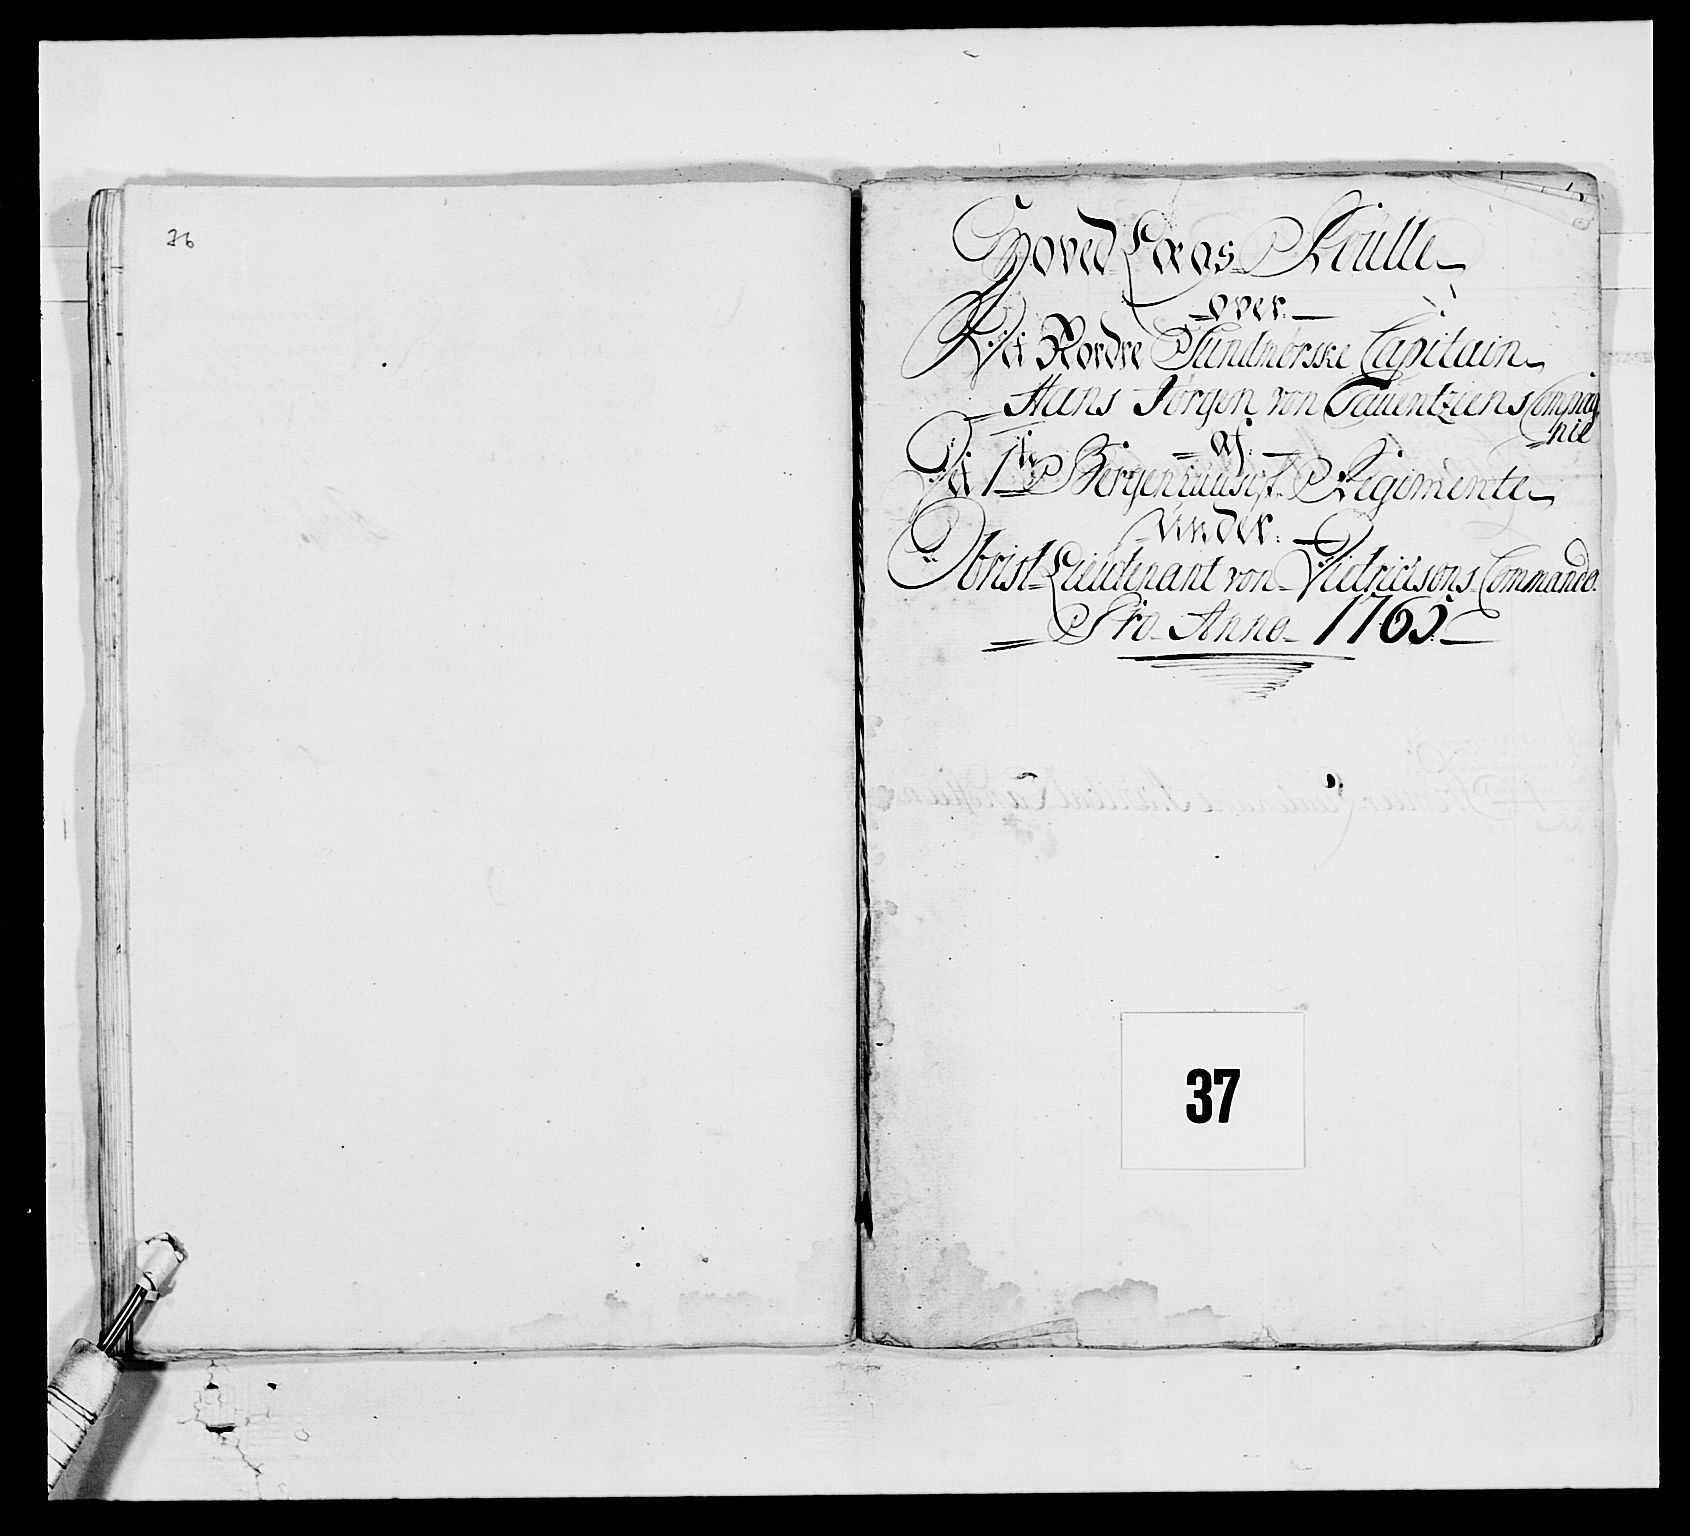 36
Hoved Lægs Roulle
over
Det Nordre Sundmørske Capitain
Hans Jørgen von Tauentziens Compag
nie
af
Det 1te Bergenhuusiske Regimente
under
Obrist Lieutenant von Didrichsons Commando.
Pro Anno 1765
37